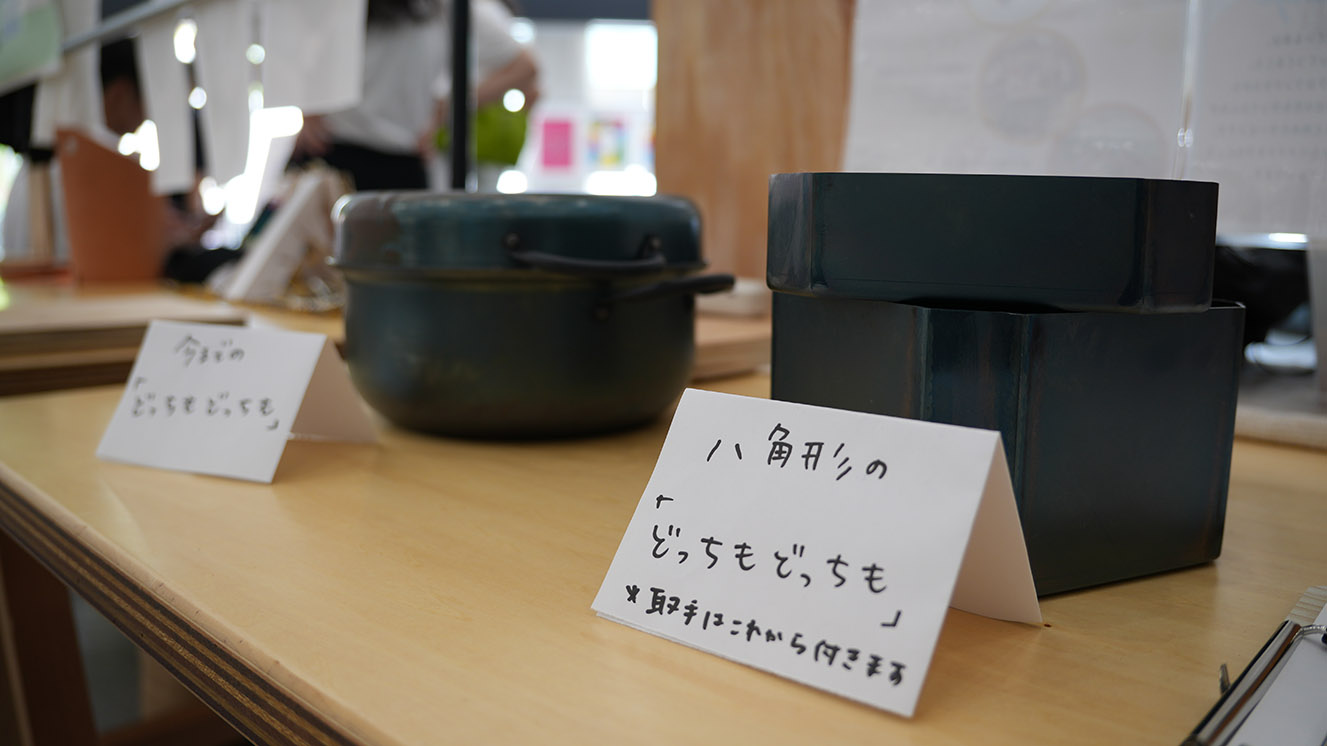 今までの
「どっちもどっちも」
八角形の
「どっちもどっちも」
*取手はこれから付きます